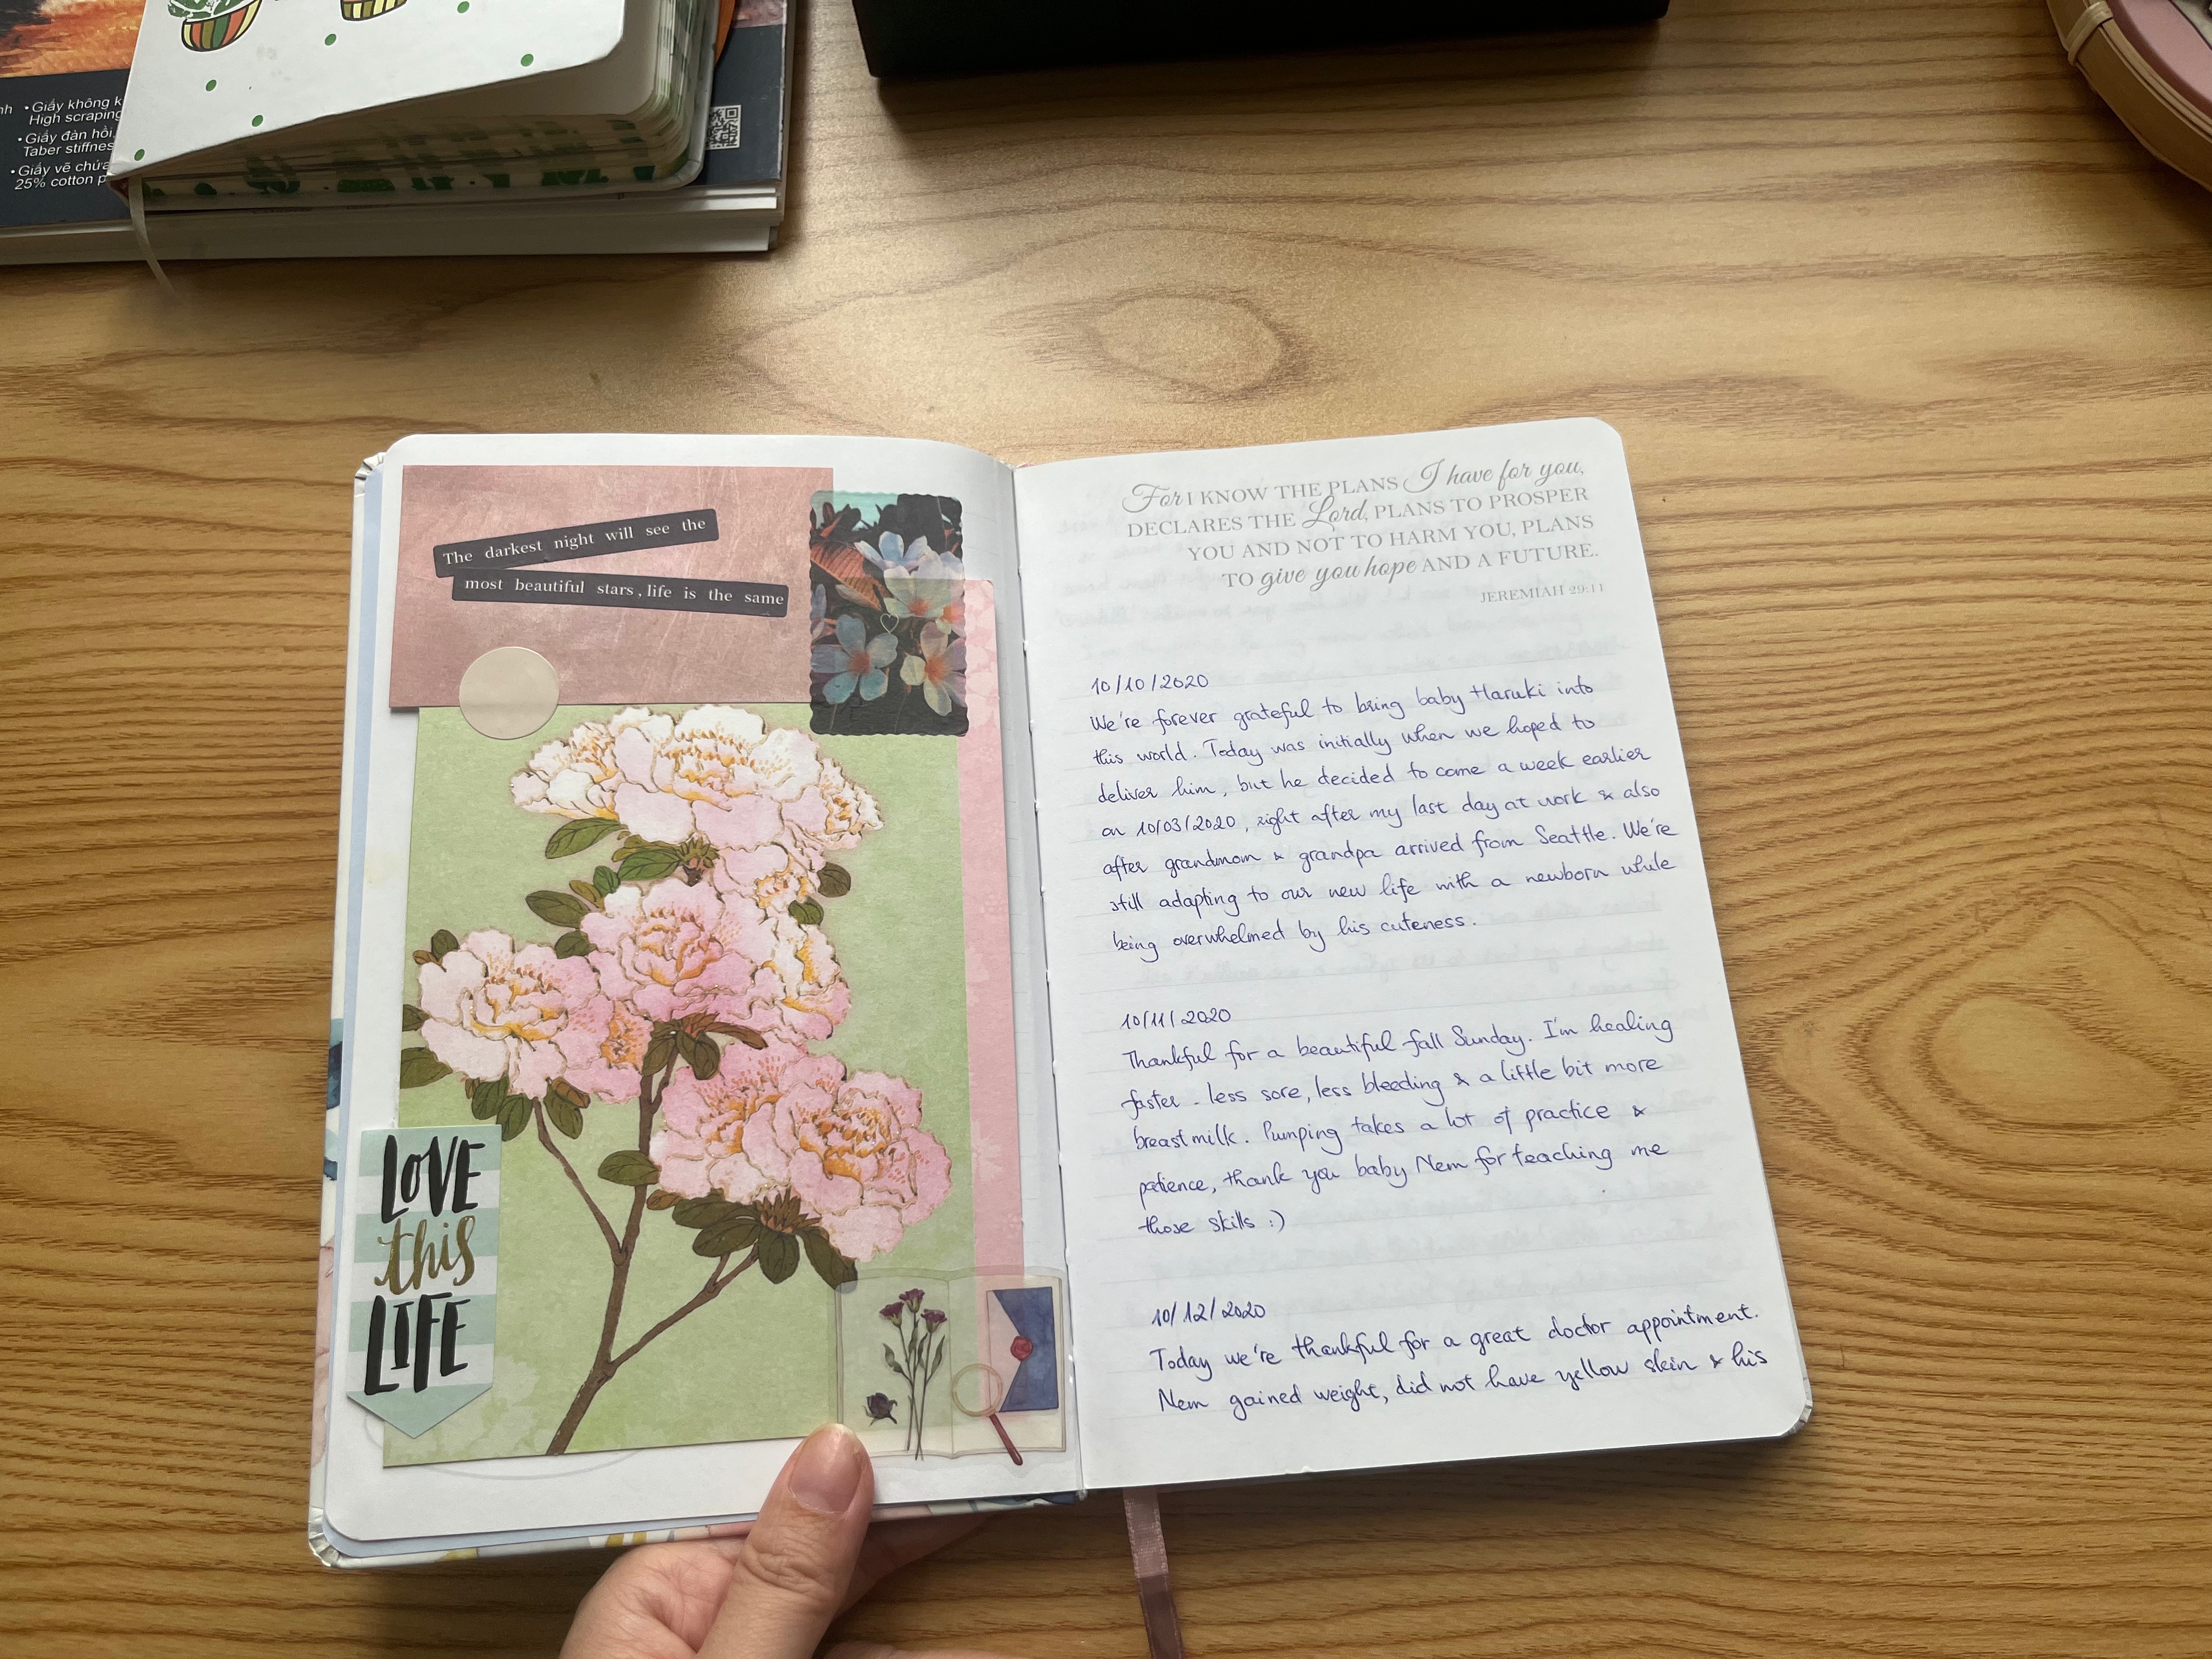 • Giấy không k
High scraping
• Giấy đàn hồi,
Taber stiffnes
• Giấy vẽ chứa
25% cotton p
The darkest night will see the
most beautiful stars, life is the same
LOVE
this
LIFE
For I KNOW THE PLANS I have for you,
DECLARES THE Lord, PLANS TO PROSPER
YOU AND NOT TO HARM YOU, PLANS
TO give you hope AND A FUTURE.
JEREMIAH 29:11
10/10/2020
We're forever grateful to bring baby Haruki into
this world. Today was initially when we hoped to
deliver him, but he decided to come a week earlier
on 10/03/2020, right after my last day at work & also
after grandmom & grandpa arrived from Seattle. We're
still adapting to our new life with a newborn while
being overwhelmed by his cuteness.
10/11/2020
Thankful for a beautiful fall Sunday. I'm healing
faster - less sore, less bleeding & a little bit more
breastmilk. Pumping takes a lot of practice &
patience, thank you baby Nem for teaching me
those skills :)
10/12/2020
Today we're thankful for a great doctor appointment.
Nem gained weight, did not have yellow skin & his